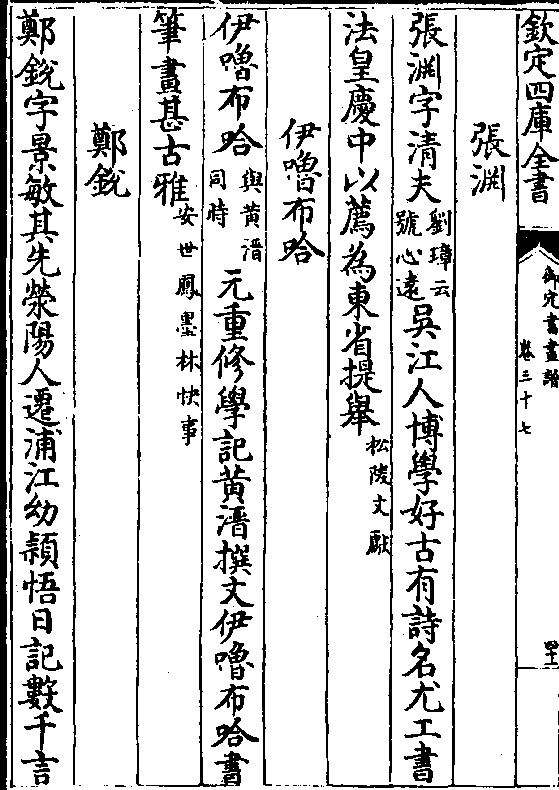 欽定四庫全書
御定書畫譜
卷三十七
張淵
張淵字清夫
劉璋云
號心遠
吳江人博學好古有詩名尤工書
法皇慶中以薦為東省提舉
松陵文獻
伊嚕布哈
伊嚕布哈
與黃溍
同時
元重修學記黃溍撰文伊嚕布哈書
筆畫甚古雅
安世鳳墨林快事
鄭銳
鄭銳字景敏其先滎陽人遷浦江幼穎悟日記數千言